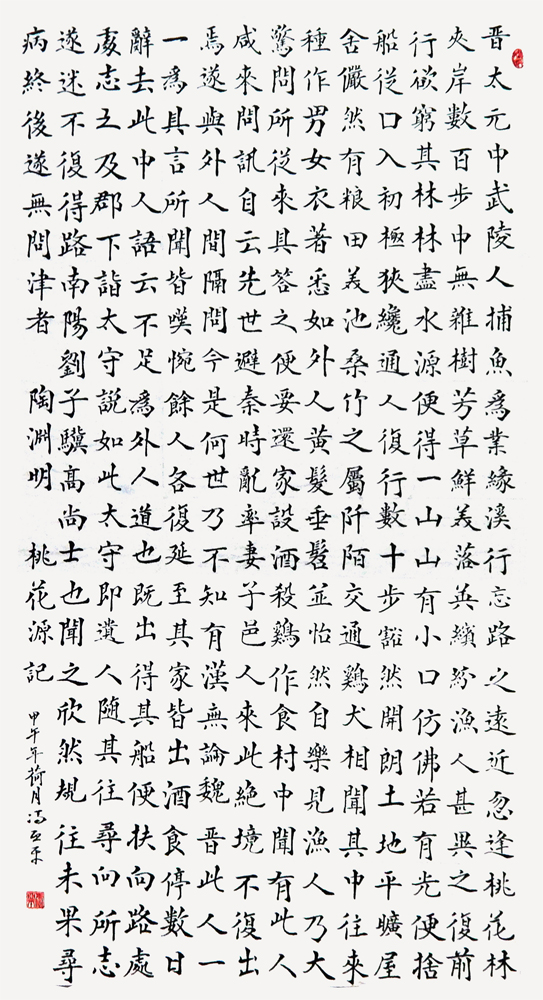 晋太元中武陵人捕魚為業緣溪行忘路之遠近忽逢桃花林
夾岸數百步中無雜樹芳草鮮美落英繽紛漁人甚異之復前
行欲窮其林林盡水源便得一山山有小口仿佛若有光便捨
船從口入初極狹纔通人復行數十步豁然開朗土地平曠屋
舍儼然有粮田美池桑竹之屬阡陌交通鷄犬相聞其中往來
種作男女衣著悉如外人黃髮垂髫並怡然自樂見漁人乃大
驚問所從來具答之便要還家設酒殺鷄作食村中聞有此人
咸來問訊自云先世避秦時亂率妻子邑人來此絕境不復出
焉遂與外人間隔問今是何世乃不知有漢無論魏晋此人一
一為具言所聞皆嘆惋餘人各復延至其家皆出酒食停數日
辭去此中人語云不足為外人道也既出得其船便扶向路處
處志之及郡下詣太守說如此太守即遣人隨其往尋向所志
遂迷不復得路南陽劉子驥高尚士也聞之欣然規往未果尋
病終後遂無問津者 陶淵明 桃花源記
甲午年荷月